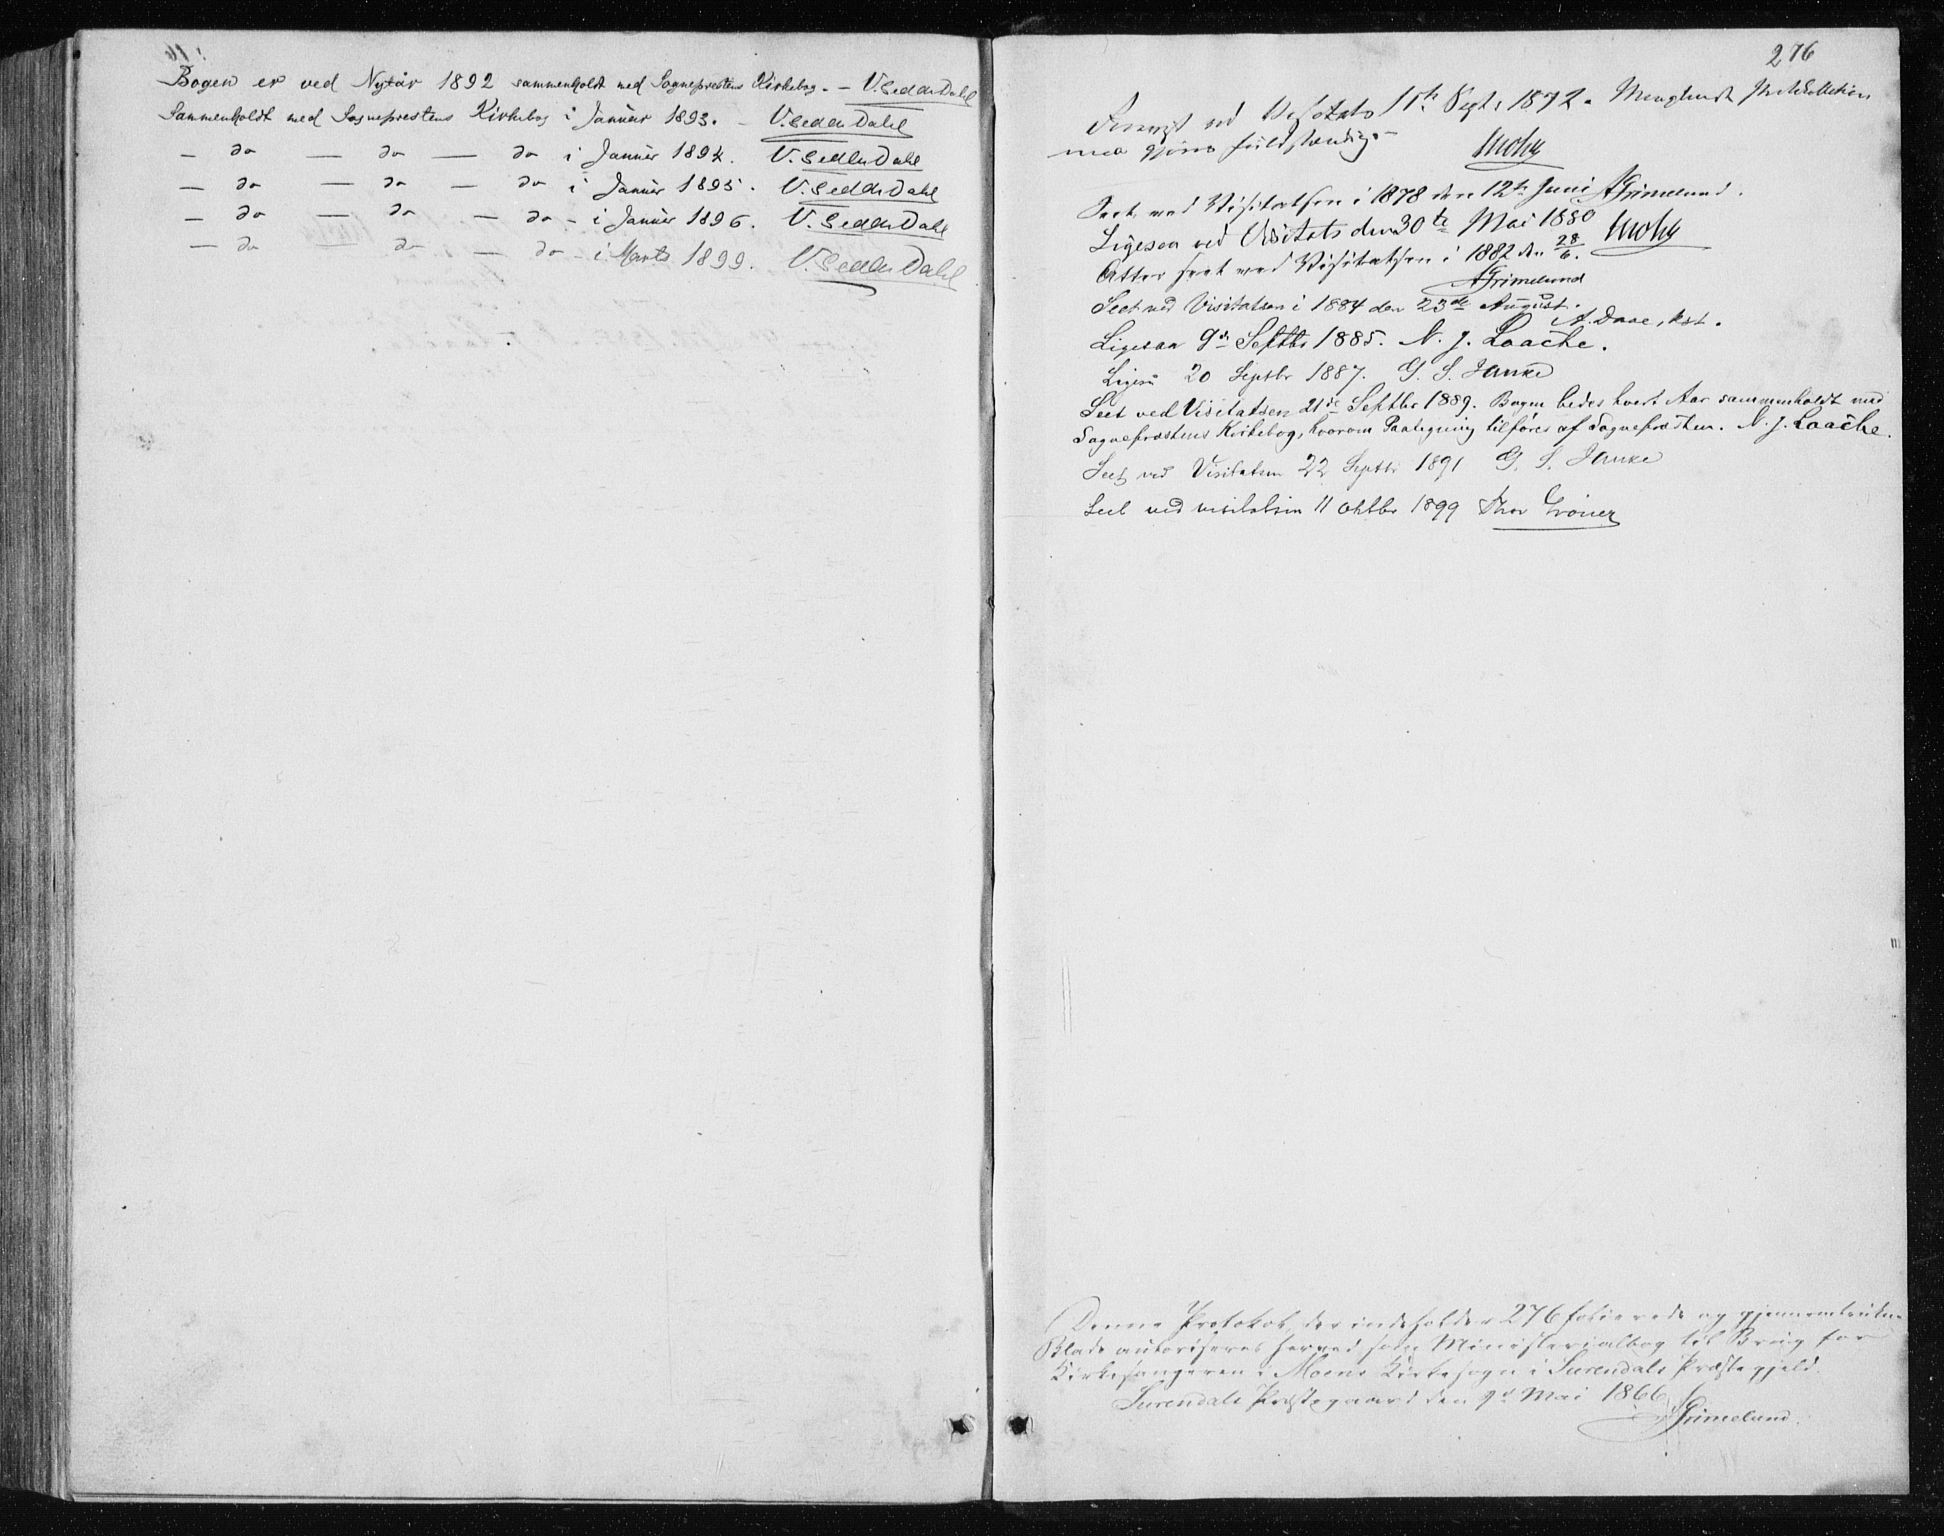 Bogen er ved Nytår 1892 sammenholdt med Sogneprestens Kirkebog. – V. Sedder Dahl
Sammenholdt med Sogneprestens Kirkebog i Januar 1893. – V. Sedder Dahl
– do — do — do i Januar 1894. V. Sedder Dahl
– do — do — do i Januar 1895. V. Sedder Dahl
– do — do — do – i Januar 1896. V. Sedder Dahl
– do do — do – i Marts 1899. V. Sedder Dahl
276
ved Visitats 11te Septr 1872.
maa gjøres fuldstændig.
Seet ved Visitatsen i 1878 den 12te Juni A Grimelund.
Ligesaa ved Visitats den 30te Mai 1880
Atter seet ved Visitatsen i 1882 den 28/6.
A Grimelund
Seet ved Visitatsen i 1884 den 23de August.
A. Daae, kst.
Ligesaa 9de Septbr 1885. N. J. Laache.
Ligeså 20 Septbr 1887. G. S. Janke
Seet ved Visitatsen 21de Septbr 1889. Bogen bedes hvert Aar sammenholdt med
Sognepræstens Kirkebog, hvorom Paategning tilføres af Sognepræsten. N. J. Laache.
Seet ved Visitatsen 22 Septbr 1891 G. S. Janke
Seet ved visitatsen 11 oktbr 1899 Thor Grøner
Denne Protokol, der indeholder 276 folierede og gjennemtrukne
Blade autoriseres herved som Ministerialbog til Brug for
Kirkesangeren i Moens Kirkesogn i Surendals Præstegjeld.
Surendals Præstegaard den 9de Mai 1866
A Grimelund.